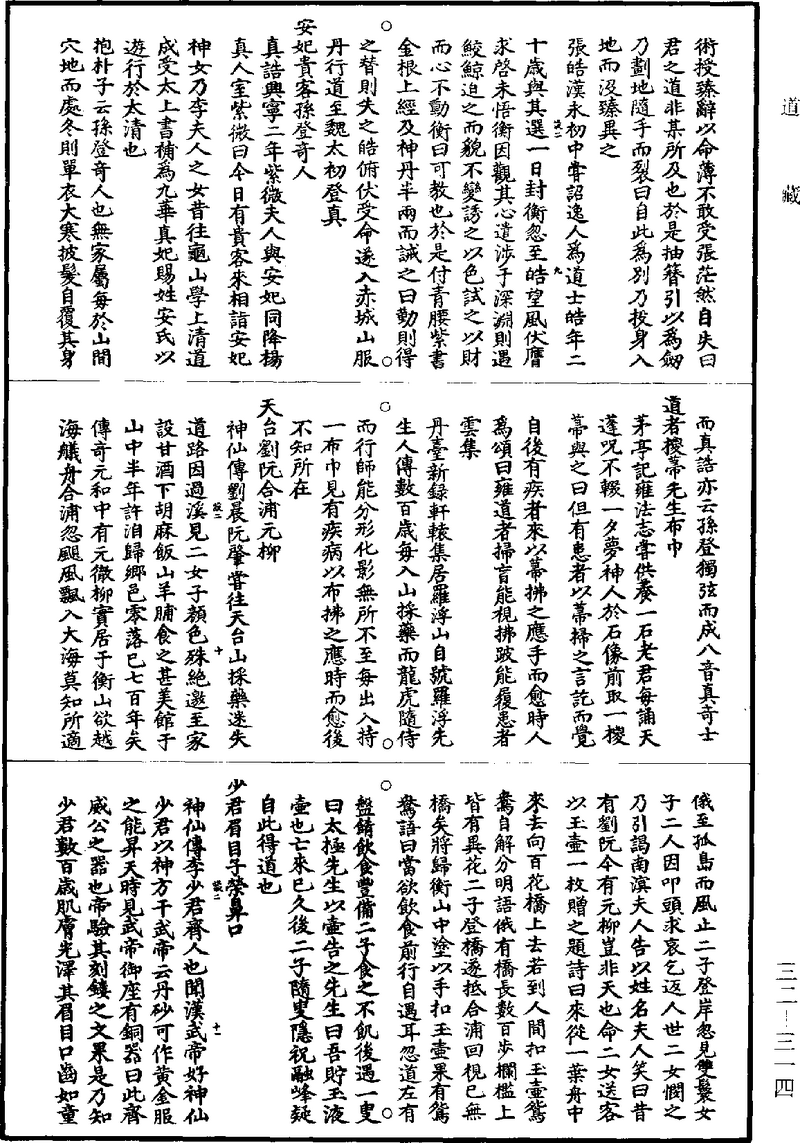 道藏
術授臻辭以命薄不敢受張茫然自失曰
君之道非某所及也於是抽簪引以為劒
乃劃地隨手而裂曰自此為別乃投身入
地而沒臻異之
張皓漢永初中嘗詔逸人為道士皓年二
十歲與其選一日封衡忽至皓望風伏膺
求啓未悟衡因觀其心遣涉于深淵則遇
鮫鯨迫之而貌不變誘之以色試之以財
而心不動衡曰可教也於是付青腰紫書
金根上經及神丹半兩而誡之曰勤則得
之替則失之皓俯伏受命遂入赤城山服
丹行道至魏太初登真
安妃貴客孫登奇人
真誥興寧二年紫微夫人與安妃同降楊
真人室紫微曰今日有貴客來相詣安妃
神女乃李夫人之女昔往龜山學上清道
成受太上書補為九華真妃賜姓安氏以
遊行於太清也
抱朴子云孫登奇人也無家屬每於山間
穴地而處冬則單衣大寒披髮自覆其身
而真誥亦云孫登獨弦而成八音真奇士
道者椶幕先生布巾
茅亭記雍法志嘗供養一石老君每誦天
蓬呪不輟一夕夢神人於石像前取一椶
幕與之曰但有患者以幕掃之言訖而覺
自後有疾者來以幕拂之應手而愈時人
為頌曰雍道者掃盲能視拂跛能履患者
雲集
丹臺新録軒轅集居羅浮山自號羅浮先
生人傳數百歲每入山採藥而龍虎隨侍
而行師能分形化影無所不至每出入持
一布巾見有疾病以布拂之應時而愈後
不知所在
天台劉阮合浦元柳
神仙傳劉晨阮肇嘗往天台山採藥迷失
道路因過溪見二女子顏色殊絶邀至家
設甘酒下胡麻飯山羊脯食之甚美館于
山中半年許洎歸鄉邑零落已七百年矣
傳奇元和中有元微柳實居于衡山欲越
海艤舟合浦忽颶風飄入大海莫知所適
俄至孤島而風止二子登岸忽見雙鬟女
子二人因叩頭求哀乞返人世二女憫之
乃引謁南溟夫人告以姓名夫人笑曰昔
有劉阮今有元柳豈非天也命二女送客
以玉壺一枚贈之題詩曰來從一葉舟中
來去向百花橋上去若到人間扣玉壺鴛
鴦自解分明語俄有橋長數百步欄檻上
皆有異花二子登橋遂抵合浦回視已無
橋矣將歸衡山中塗以手扣玉壺果有鴛
鴦語曰當欲飲食前行自遇耳忽道左有
盤餚飲食豐備二子食之不飢後遇一叟
曰太極先生以壺告之先生曰吾貯玉液
壺也亡來已久後二子隨叟隱祝融峰疑
自此得道也
少君眉目子榮鼻口
神仙傳李少君齊人也聞漢武帝好神仙
少君以神方干武帝云丹砂可作黃金服
之能昇天時見武帝御座有銅器曰此齊
威公之器也帝驗其刻鏤之文果是乃知
少君數百歲肌膚光澤其眉目口齒如童
三二—三一四